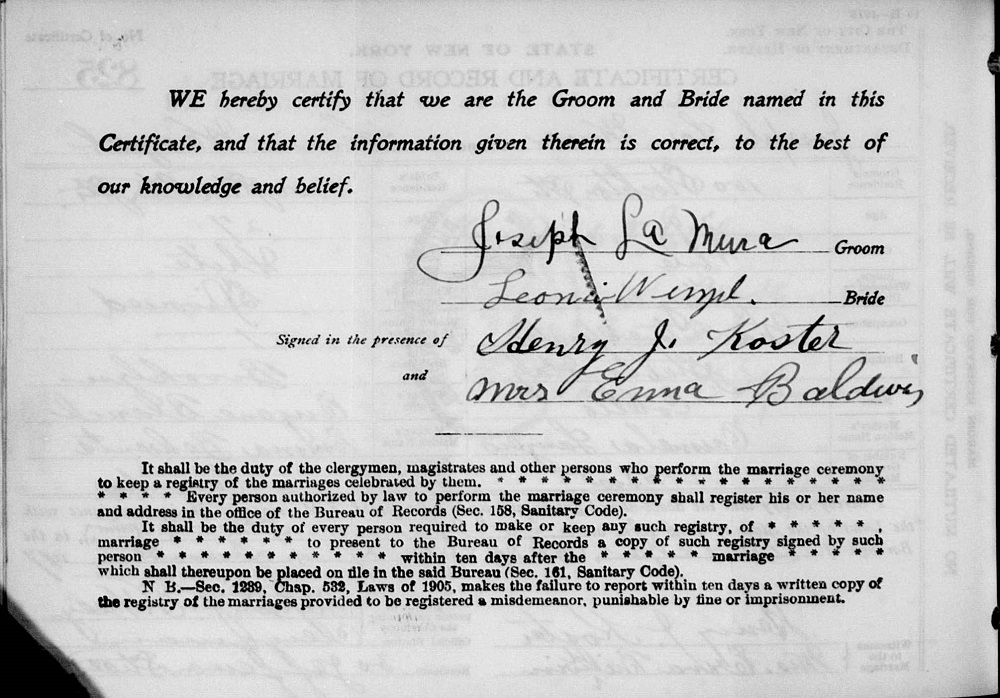 WE hereby certify that we are the Groom and Bride named in this
Certificate, and that the information given therein is correct, to the best of
our knowledge and belief.
Joseph La Mura Groom
Leonia Bride
Signed in the presence of Henry J. Koster
and Mrs Emma Baldwin
It shall be the duty of the clergymen, magistrates and other persons who perform the marriage ceremony
to keep a registry of the marriages celebrated by them. * * * * * * * * * * * * * * * *
* * * * Every person authorized by law to perform the marriage ceremony shall register his or her name
and address in the office of the Bureau of Records (Sec. 158, Sanitary Code).
It shall be the duty of every person required to make or keep any such registry, of * * * * * ,
marriage * * * * * * to present to the Bureau of Records a copy of such registry signed by such
person * * * * * * * * * * * within ten days after the * * * * * marriage * * * * *
which shall thereupon be placed on file in the said Bureau (Sec. 161, Sanitary Code).
N B.—Sec. 1239, Chap. 532, Laws of 1905, makes the failure to report within ten days a written copy of
the registry of the marriages provided to be registered a misdemeanor, punishable by fine or imprisonment.